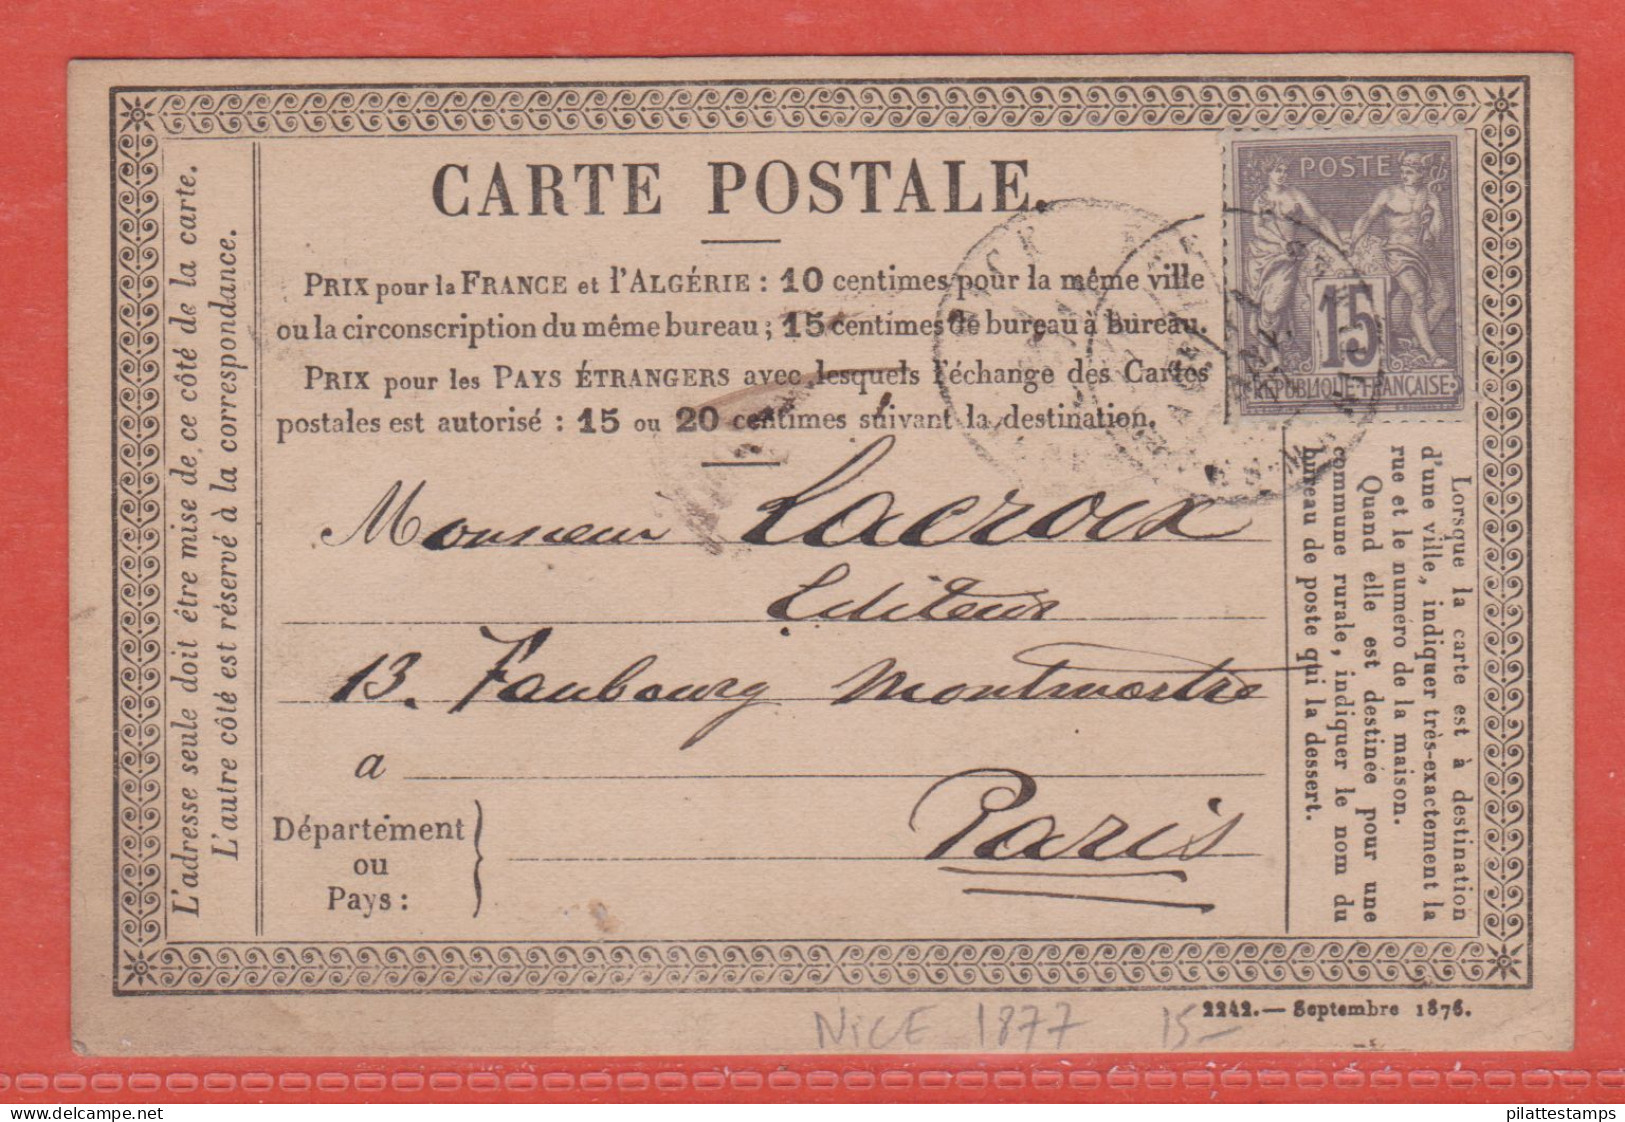 CARTE POSTALE.
POSTE
15
RÉPUBLIQUE FRANÇAISE
PRIX pour la FRANCE et l'ALGÉRIE : 10 centimes pour la même ville
ou la circonscription du même bureau ; 15 centimes de bureau à bureau.
PRIX pour les PAYS ÉTRANGERS avec lesquels l'échange des Cartes
postales est autorisé : 15 ou 20 centimes suivant la destination.
Monsieur Lacroix
Editeur
13. Faubourg Montmartre
a
Paris
Département
ou
Pays :
L'adresse seule doit être mise de ce côté de la carte.
L'autre côté est réservé à la correspondance.
Lorsque la carte est à destination
d'une ville, indiquer très-exactement la
rue et le numéro de la maison.
Quand elle est destinée pour une
commune rurale, indiquer le nom du
bureau de poste qui la dessert.
2242. — Septembre 1876.
NICE 1877 15-
pilattestamps